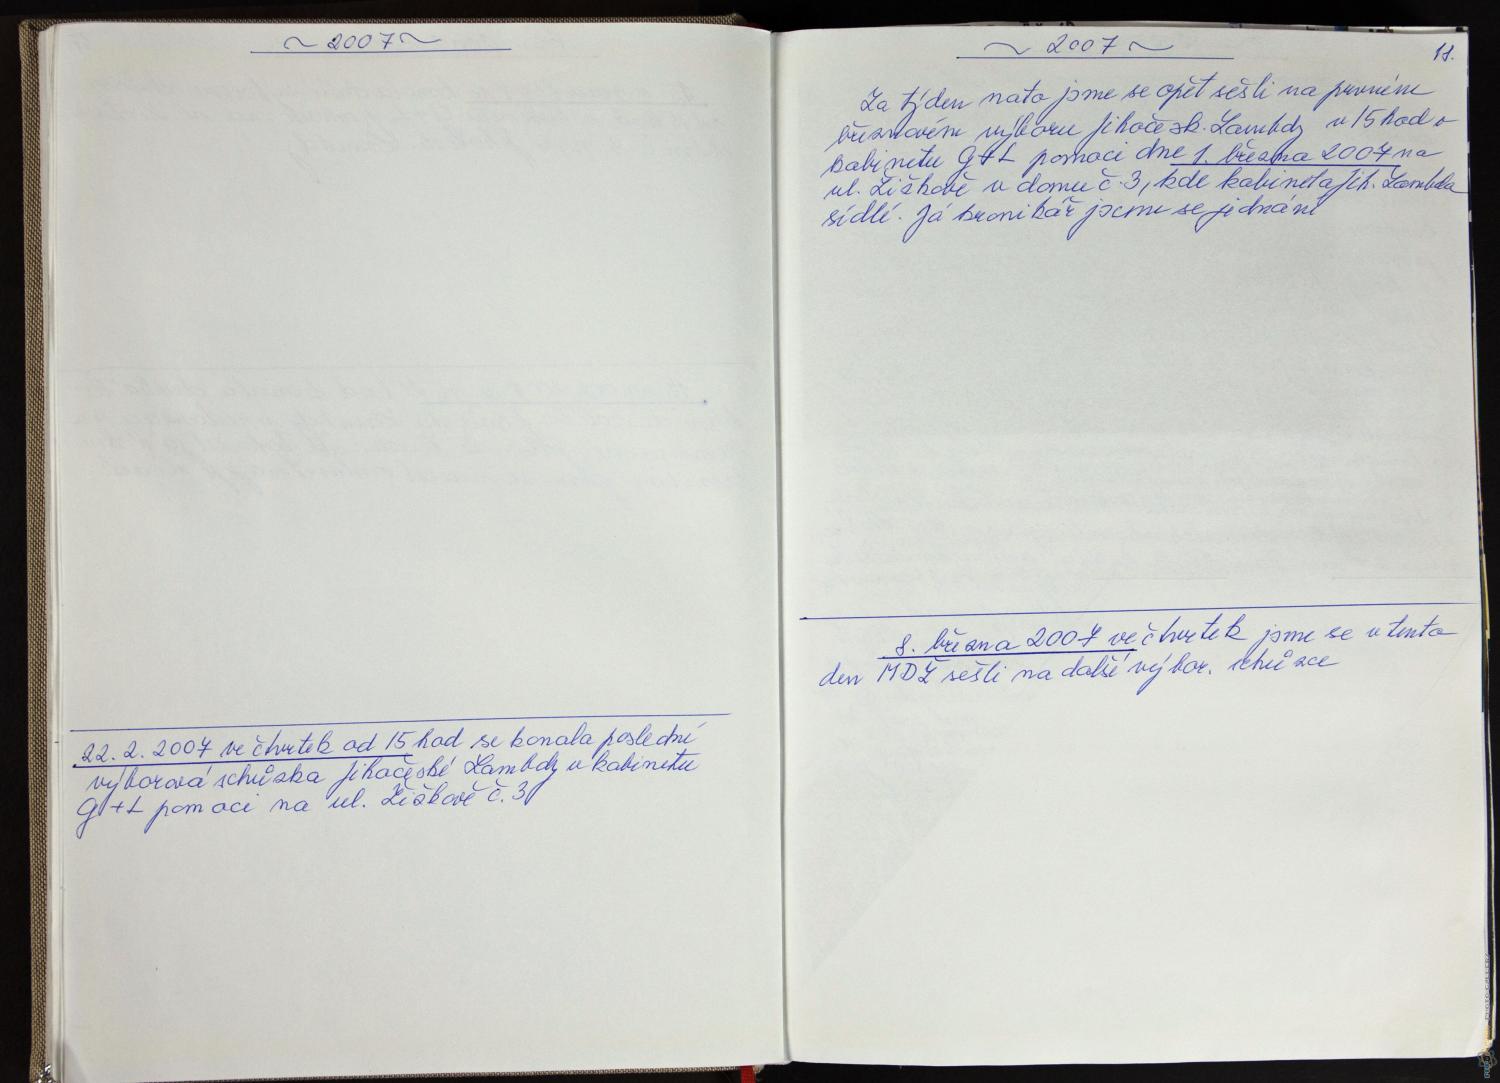 ~ 2007 ~
22. 2. 2007 ve čtvrtek od 15 hod se konala poslední
výborová schůzka Jihočeské Lambdy v kabinetu
G+L pomoci na ul. Žižkově č. 3
~ 2007 ~
11.
Za týden nato jsme se opět sešli na prvném
březnovém výboru Jihočesk. Lambdy v 15 hod v
kabinetu G+L pomoci dne 1. března 2007 na
ul. Žižkově v domu č. 3, kde kabinet a Jih. Lambda
sídlí. Já kronikář jsem se jednání
8. března 2007 ve čtvrtek jsme se v tento
den MDŽ sešli na další výbor. schůzce